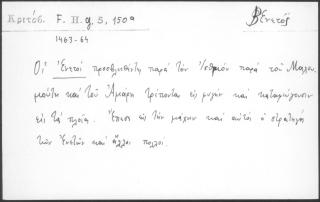 Κριτόβ. F. H. g. 5, 150α Βενετός
1463-64
Οἱ Ἐνετοί προσβληθέντες παρά τὸν Ἰσθμόν παρά τοῦ Μαχου-
μούτη καί τοῦ Ἀμαρη τρέπονται εἰς φυγήν καί καταφεύγουσιν
εἰς τά πλοῖα. Ἔπεσε εἰς τήν μάχην καί αὐτός ὁ στρατηγός
τῶν Ἐνετῶν καί ἄλλοι πολλοί.